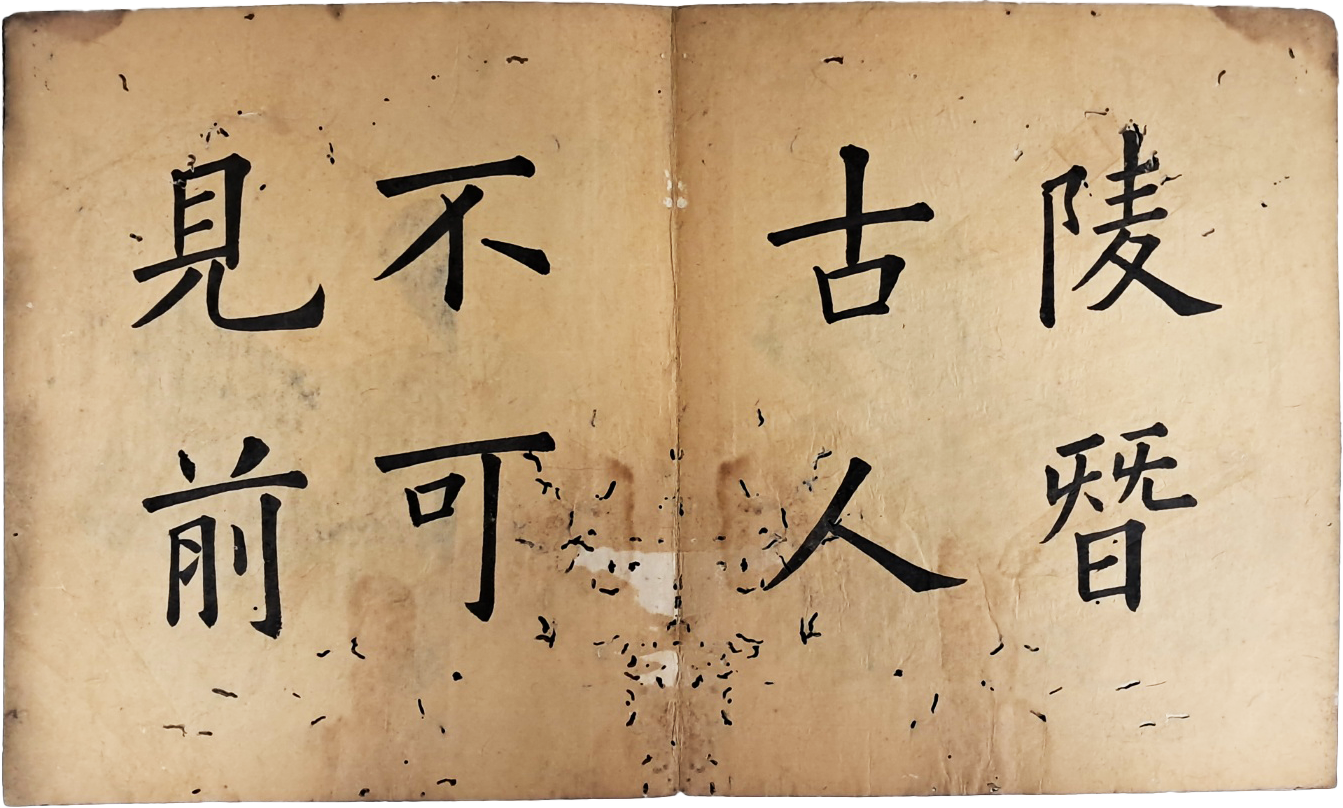 陵朁
古人
不可
見前